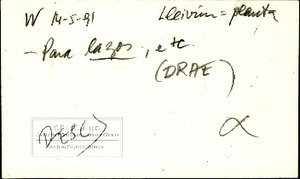 W 14-5-91 Lleivún = planta
- Para lazos, etc.
(DRAE)
DESC)
α